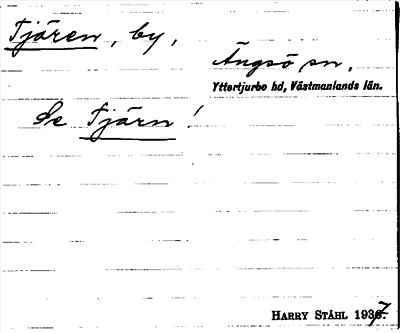 Tjären, by,
Ängsö sn,
Yttertjurbo hd, Västmanlands län.
Se Tjärn!
HARRY STÅHL 1937.